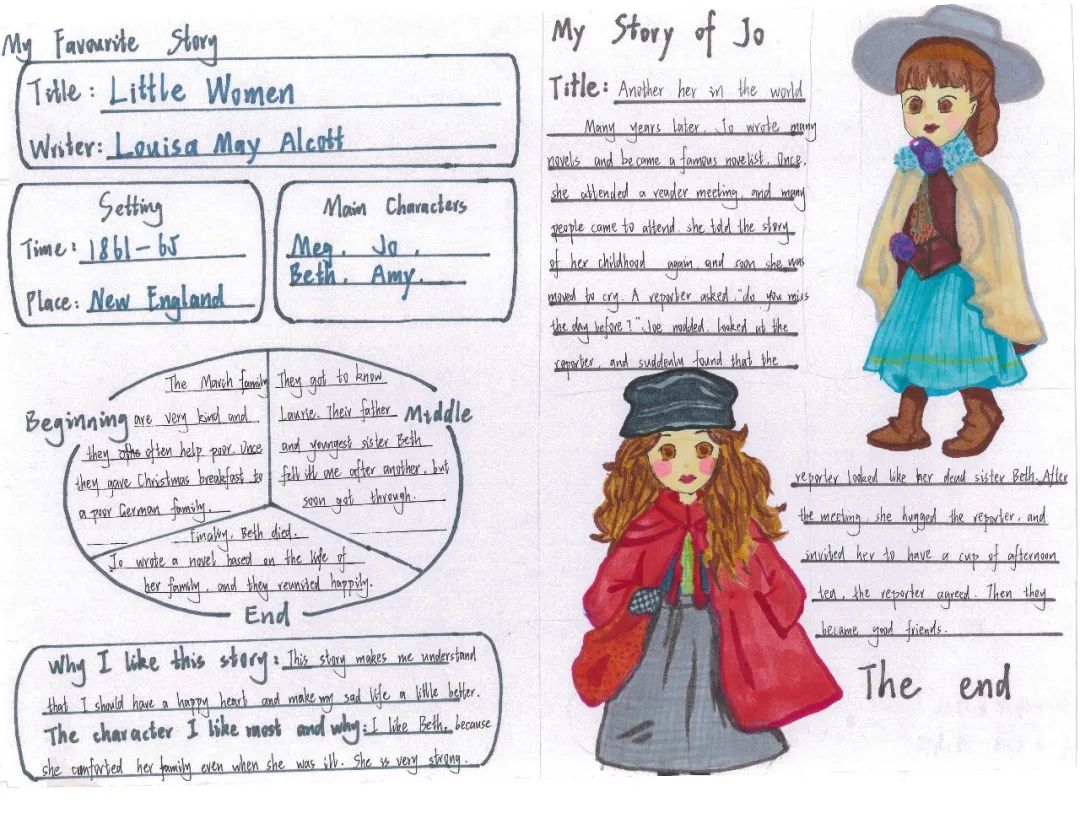 My Favourite Story
Title: Little Women
Writer: Louisa May Alcott
Setting
Time: 1861-65
Place: New England
Main Characters
Meg, Jo,
Beth, Amy.
Beginning
The March family
are very kind and
they often help poor. Once
they gave Christmas breakfast to
a poor German family.
Middle
They got to know
Laurie. Their father
and youngest sister Beth
fell ill one after another, but
soon got through.
Finally, Beth died.
Jo wrote a novel based on the life of
her family, and they reunited happily.
End
Why I like this story: This story makes me understand
that I should have a happy heart and make my sad life a little better.
The character I like most and why: I like Beth, because
she comforted her family even when she was ill. She is very strong.
My Story of Jo
Title: Another her in the world
Many years later, Jo wrote many
novels and became a famous novelist. Once,
she attended a reader meeting, and many
people came to attend. she told the story
of her childhood again, and soon she was
moved to cry. A reporter asked, "do you miss
the day before?" Joe nodded, looked at the
reporter, and suddenly found that the
reporter looked like her dead sister Beth. After
the meeting, she hugged the reporter, and
invited her to have a cup of afternoon
tea, the reporter agreed. Then they
became good friends.
The end